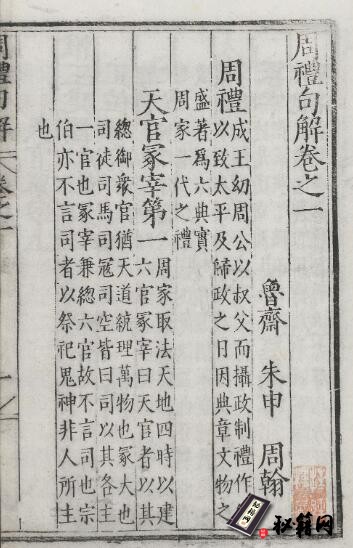 周禮句解卷之一
魯齋 朱申 周翰
周禮成王幼周公以叔父而攝政制禮作
以致太平及歸政之日因典章文物之
盛著爲六典實
周家一代之禮
天官冢宰第一周家取法天地四時以建
六官冢宰曰天官者以其
總御衆官猶天道統理萬物也冢大也
司徒司馬司冦司空皆曰司以其各主
一官也冢宰兼總六官故不言司也宗
伯亦不言司者以祭祀鬼神非人所主
也
周禮句解
卷之一
秘籍网
秘籍网